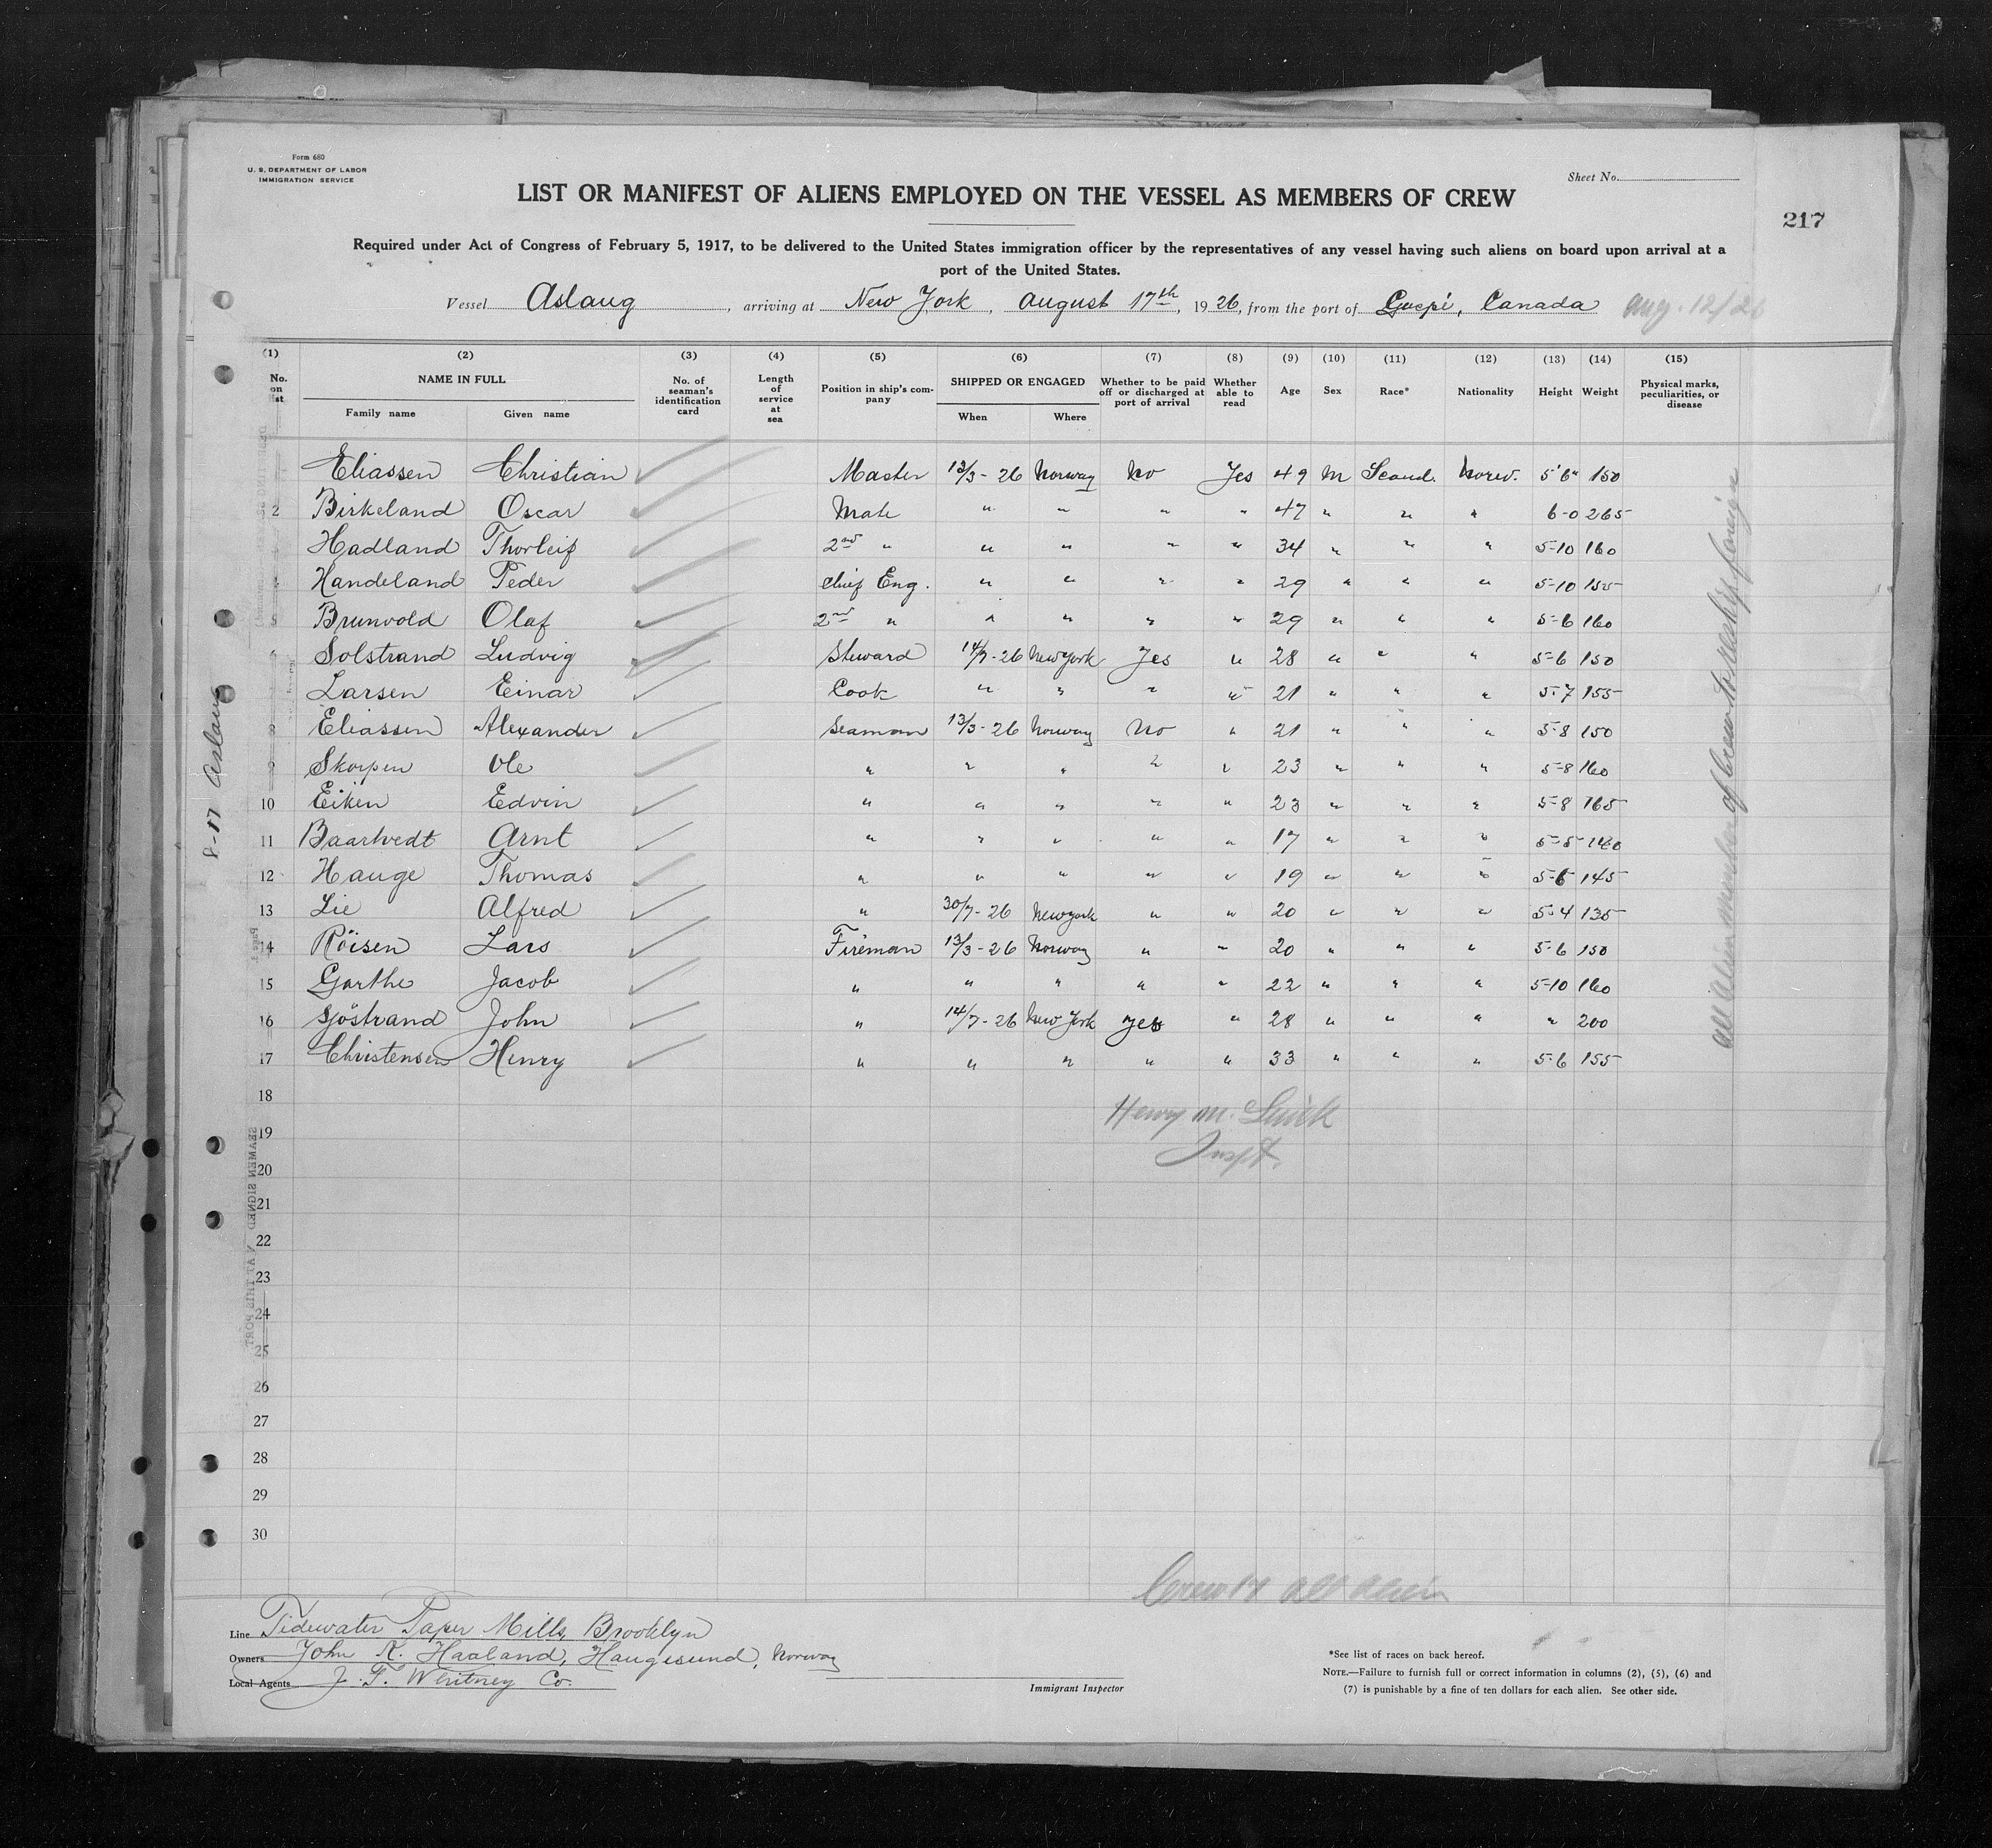 Form 680
U. S. DEPARTMENT OF LABOR
IMMIGRATION SERVICE
Sheet No.
LIST OR MANIFEST OF ALIENS EMPLOYED ON THE VESSEL AS MEMBERS OF CREW
217
Required under Act of Congress of February 5, 1917, to be delivered to the United States immigration officer by the representatives of any vessel having such aliens on board upon arrival at a
port of the United States.
Vessel Aslaug, arriving at New York, August 17th, 1926, from the port of Gaspé, Canada Aug. 12/26
(1) (2) (3) (4) (5) (6) (7) (8) (9) (10) (11) (12) (13) (14) (15)
No. on list NAME IN FULL Family name Given name No. of seaman's identification card Length of service at sea Position in ship's company SHIPPED OR ENGAGED When Where Whether to be paid off or discharged at port of arrival Whether able to read Age Sex Race* Nationality Height Weight Physical marks, peculiarities, or disease
Eliassen Christian Master 13/3-26 Norway No Yes 49 M Scand. Norw. 5'6" 150
2 Birkeland Oscar Mate " " " " 47 " " " 6-0 265
Hadland Thorleif 2nd " " " " " 34 " " " 5-10 160
4 Handeland Peder Chief Eng. " " " " 29 " " " 5-10 155
5 Brunvold Olaf 2nd " " " " " 29 " " " 5-6 160
6 Solstrand Ludvig Steward 14/7-26 New York Yes " 28 " " " 5-6 150
Larsen Einar Cook " " " " 21 " " " 5-7 155
8 Eliassen Alexander Seaman 13/3-26 Norway No " 21 " " " 5-8 150
9 Skorpen Ole " " " " " 23 " " " 5-8 160
10 Eiken Edvin " " " " " 23 " " " 5-8 165
11 Baartvedt Arnt " " " " " 17 " " " 5-5 140
12 Hauge Thomas " " " " " 19 " " " 5-6 145
13 Lie Alfred " 30/7-26 New York " " 20 " " " 5-4 135
14 Röisen Lars Fireman 13/3-26 Norway " " 20 " " " 5-6 150
15 Garthe Jacob " " " " " 22 " " " 5-10 160
16 Sjöstrand John " 14/7-26 New York Yes " 28 " " " " 200
17 Christensen Henry " " " " " 33 " " " 5-6 155
18
Henry M.
19
Inspt.
20
21
22
23
24
25
26
27
28
29
30
Crew 17 all alien
8-17 Aslaug
SEAMEN SIGNED AT THIS PORT
All alien members of crew to reship foreign
Line Tidewater Paper Mills, Brooklyn
Owners John K. Haaland, Haugesund, Norway
Local Agents J. T. Whitney Co.
Immigrant Inspector
*See list of races on back hereof.
NOTE.—Failure to furnish full or correct information in columns (2), (5), (6) and
(7) is punishable by a fine of ten dollars for each alien. See other side.